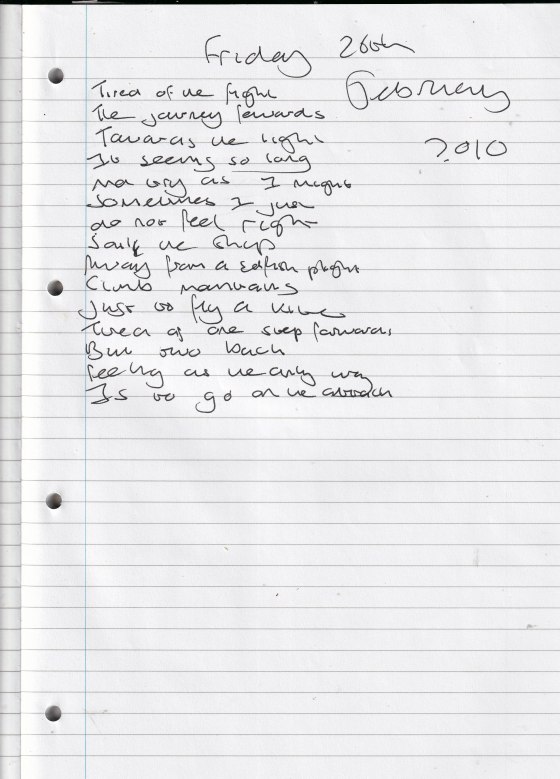 Friday 26th
February
2010
Tired of the fight
The journey forwards
Towards the light
It seems so long
No cry as I might
Sometimes I just
do not feel right
Sail the ship
Away from a selfish plight
Climb mountains
Just to fly a kite
Tired of one step forwards
But two back
Feeling as the only way
Is to go on the attack